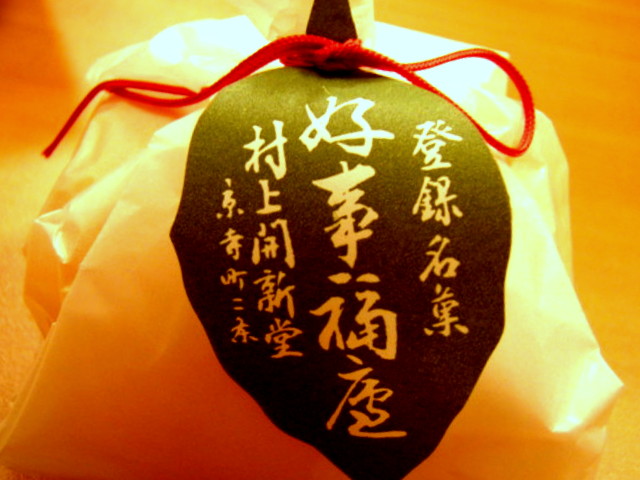 登録名菓
好事福廬
村上開新堂
京寺町二条